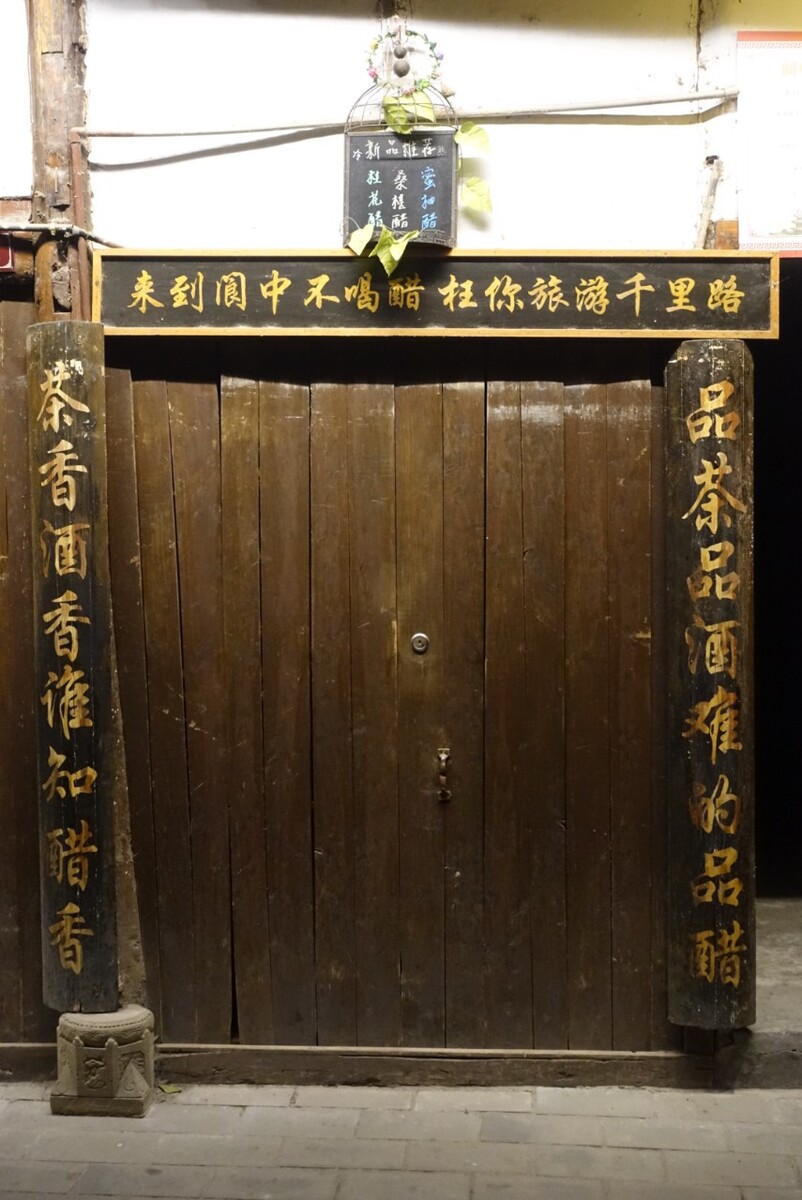 新品推荐
桂花醋
桑椹醋
蜜柚醋
来到阆中不喝醋 枉你旅游千里路
品茶品酒难的品醋
茶香酒香谁知醋香